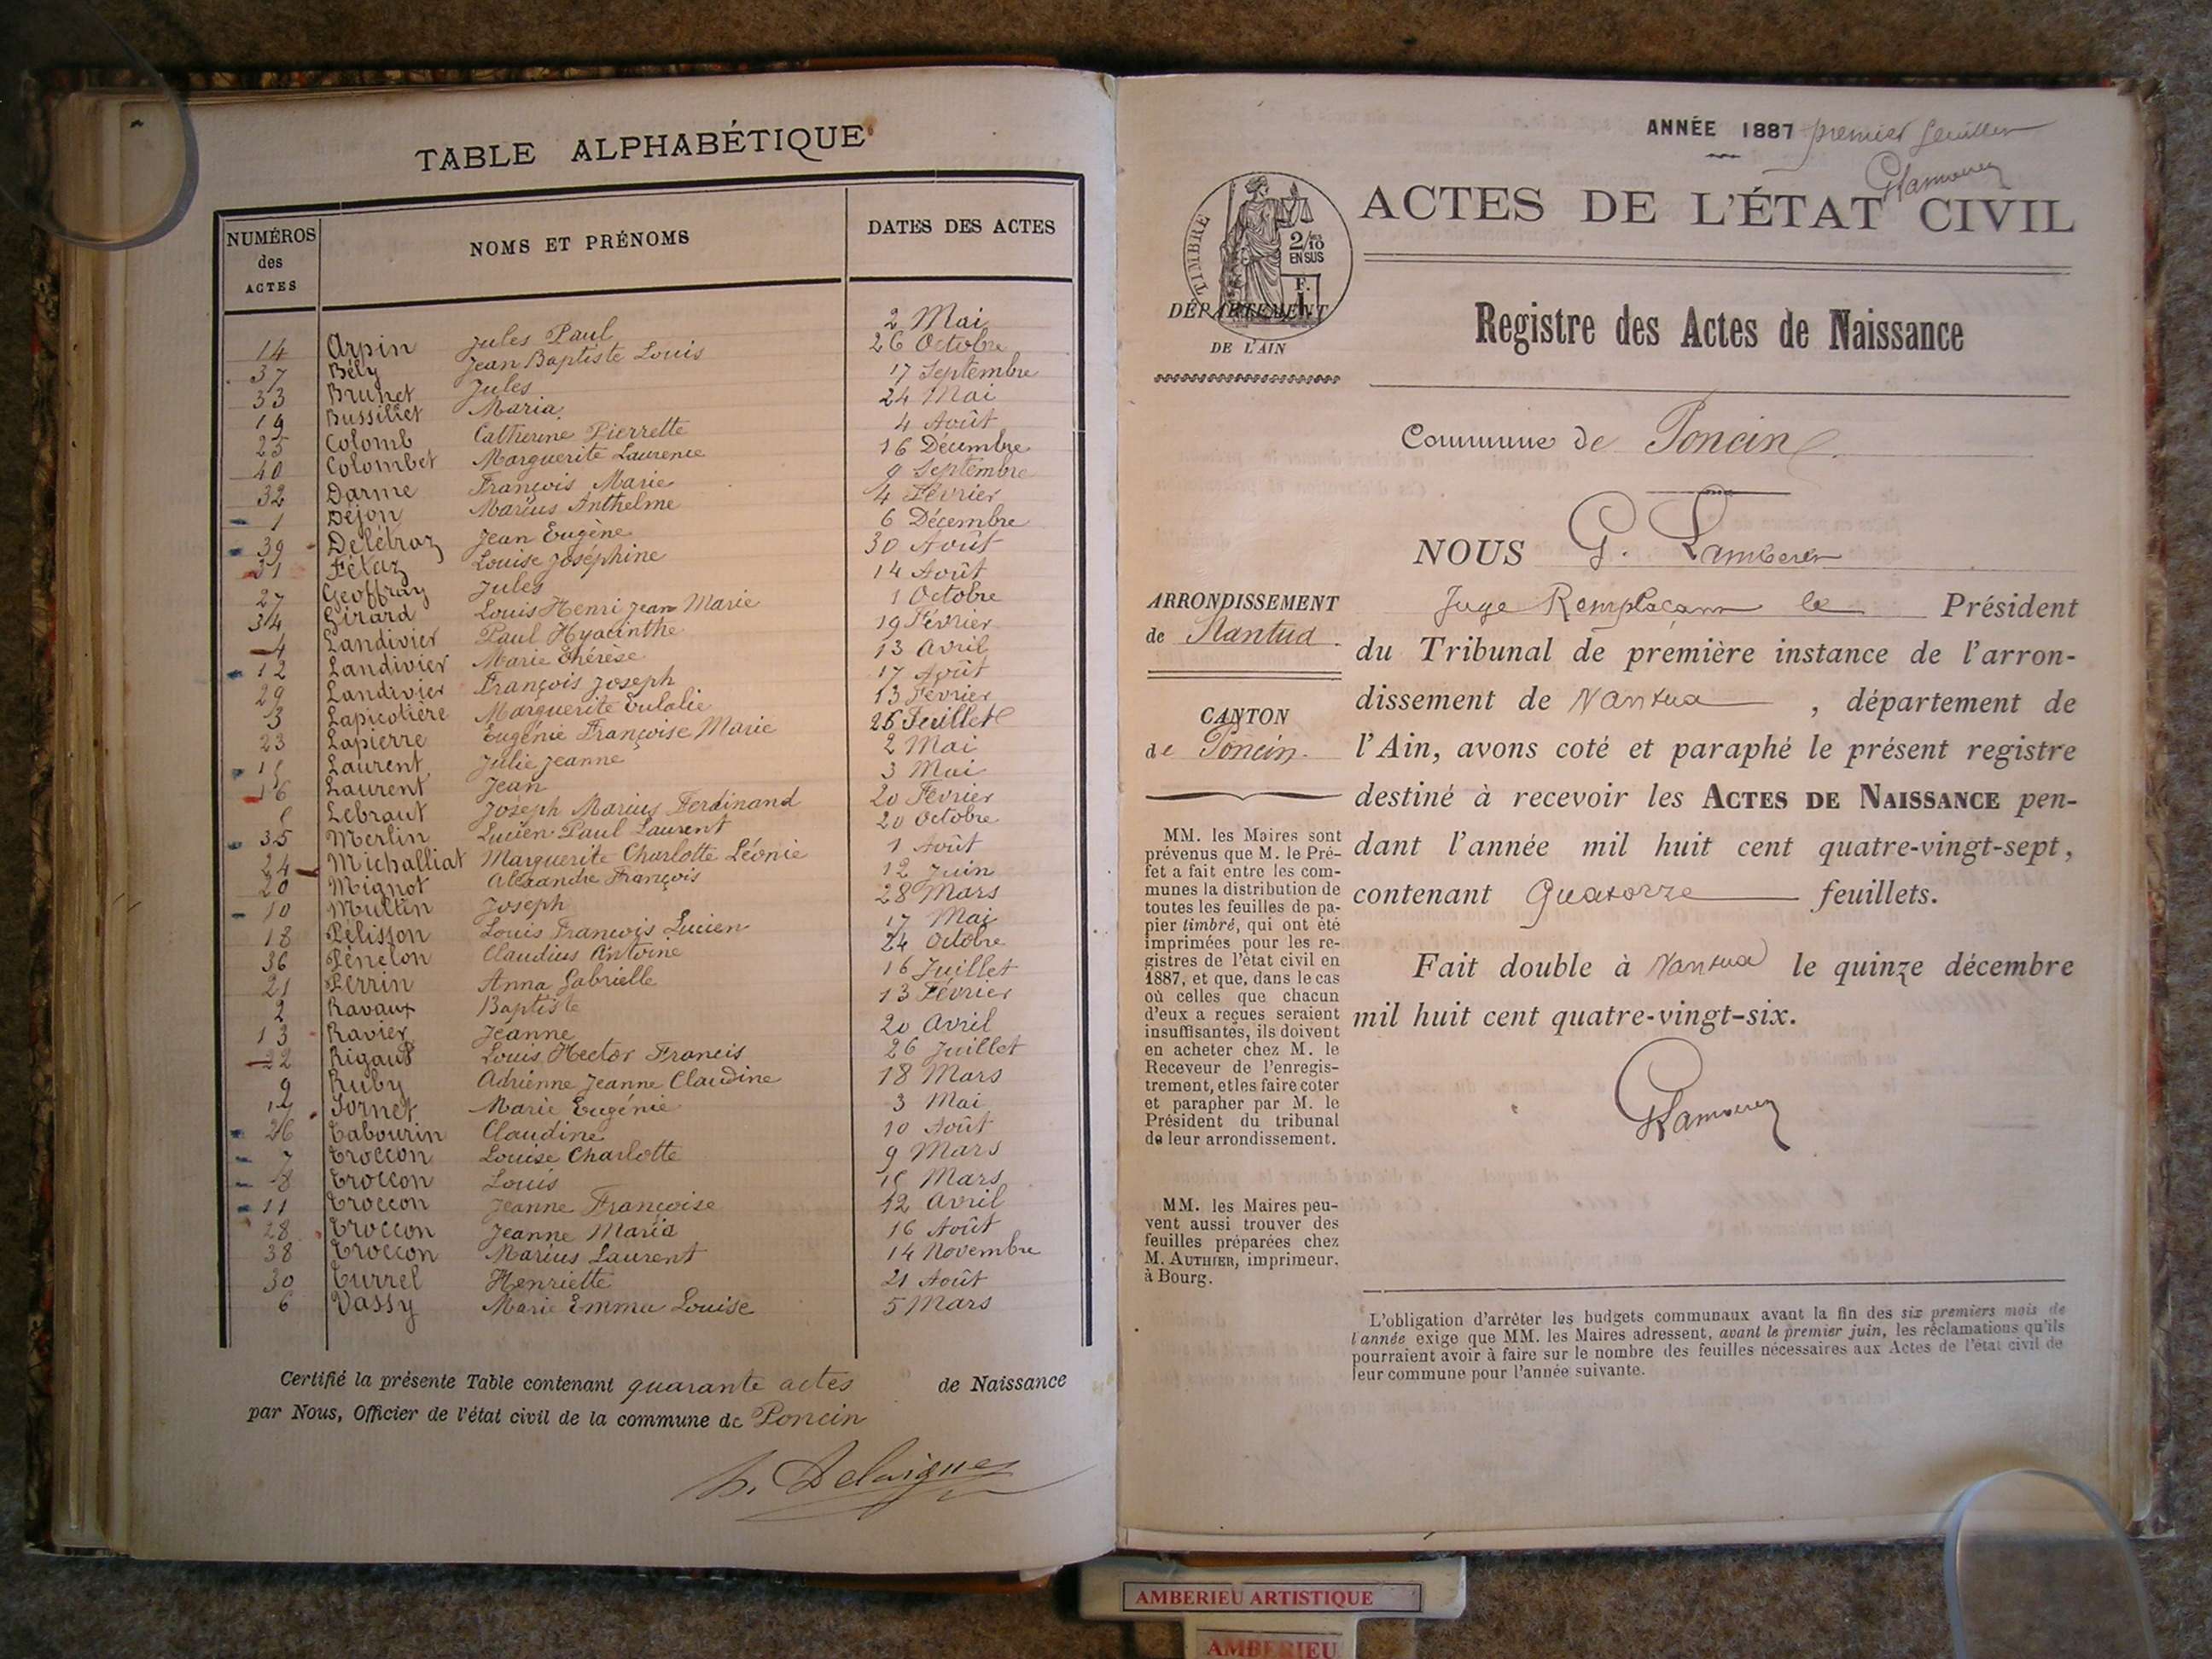 TABLE ALPHABÉTIQUE
NUMÉROS des ACTES NOMS ET PRÉNOMS DATES DES ACTES
14 Arpin Jules Paul 2 Mai
37 Bély Jean Baptiste Louis 26 Octobre
33 Brunet Jules 17 Septembre
19 Bussillet Maria 24 Mai
25 Colomb Catherine Pierrette 4 Août
40 Colombet Marguerite Laurence 16 Décembre
32 Darme François Marie 9 Septembre
1 Déjon Marius Anthelme 4 Février
39 Delébraz Jean Eugène 6 Décembre
31 Fétaz Louise Joséphine 30 Août
27 Geoffray Jules 14 Août
34 Girard Louis Henri Jean Marie 1 Octobre
4 Landivier Paul Hyacinthe 19 Février
12 Landivier Marie Thérèse 13 Avril
29 Landivier François Joseph 17 Août
3 Lapicotière Marguerite Eulalie 13 Février
23 Lapierre Eugénie Françoise Marie 26 Juillet
15 Laurent Julie Jeanne 2 Mai
16 Laurent Jean 3 Mai
Lebraut Joseph Marius Ferdinand 20 Février
35 Merlin Lucien Paul Laurent 20 Octobre
24 Michalliat Marguerite Charlotte Léonie 1 Août
20 Mignot Alexandre François 12 Juin
10 Multin Joseph 28 Mars
18 Pélisson Louis François Lucien 17 Mai
36 Pénelon Claudius Antoine 24 Octobre
21 Perrin Anna Gabrielle 16 Juillet
2 Ravaux Baptiste 13 Février
13 Ravier Jeanne 20 Avril
22 Rigaud Louis Hector Francis 26 Juillet
9 Ruby Adrienne Jeanne Claudine 18 Mars
17 Sornet Marie Eugénie 3 Mai
26 Tabourin Claudine 10 Août
7 Troccon Louise Charlotte 9 Mars
8 Troccon Louis Mars
11 Troccon Jeanne Françoise 12 Avril
28 Troccon Jeanne Maria 16 Août
38 Troccon Marius Laurent 14 Novembre
30 Turrel Henriette 21 Août
6 Vassy Marie Emma Louise 5 Mars
Certifié la présente Table contenant quarante actes de Naissance
par Nous, Officier de l'état civil de la commune de Poncin
h. Delaigues
ANNÉE 1887 premier feuillet
ACTES DE L'ÉTAT CIVIL
TIMBRE
2/10 EN SUS
F. 1
DÉPARTEMENT
DE L'AIN
Registre des Actes de Naissance
Commune de Poncin
NOUS G.
Juge Remplaçant le Président
du Tribunal de première instance de l'arron-
dissement de Nantua, département de
l'Ain, avons coté et paraphé le présent registre
destiné à recevoir les ACTES DE NAISSANCE pen-
dant l'année mil huit cent quatre-vingt-sept,
contenant Quatorze feuillets.
Fait double à Nantua le quinze décembre
mil huit cent quatre-vingt-six.
ARRONDISSEMENT
de Nantua.
CANTON
de Poncin.
MM. les Maires sont
prévenus que M. le Pré-
fet a fait entre les com-
munes la distribution de
toutes les feuilles de pa-
pier timbré, qui ont été
imprimées pour les re-
gistres de l'état civil en
1887, et que, dans le cas
où celles que chacun
d'eux a reçues seraient
insuffisantes, ils doivent
en acheter chez M. le
Receveur de l'enregis-
trement, et les faire coter
et parapher par M. le
Président du tribunal
de leur arrondissement.
MM. les Maires peu-
vent aussi trouver des
feuilles préparées chez
M. AUTHIER, imprimeur,
à Bourg.
L'obligation d'arrêter les budgets communaux avant la fin des six premiers mois de
l'année exige que MM. les Maires adressent, avant le premier juin, les réclamations qu'ils
pourraient avoir à faire sur le nombre des feuilles nécessaires aux Actes de l'état civil de
leur commune pour l'année suivante.
AMBERIEU ARTISTIQUE
AMBERIEU